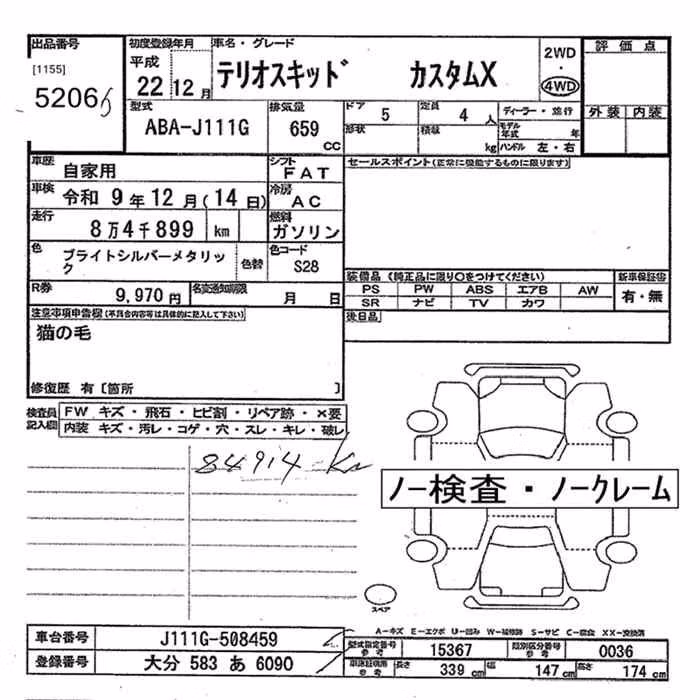 出品番号
[1155]
5206
初度登録年月
平成
22 12 月
車名・グレード
テリオスキッド カスタムX
2WD
・
4WD
評価点
外装 内装
型式
ABA-J111G
排気量
659
CC
ドア
5
定員
4 人
形状
積載
kg
ディーラー・並行
モデル年式
年
ハンドル 左・右
車歴
自家用
シフト
FAT
車検
令和 9 年 12 月 (14 日)
冷房
AC
走行
8 万 4 千 899 km
燃料
ガソリン
色
ブライトシルバーメタリック
色替
色コード
S28
R券
9,970 円
名変通知期限
月 日
セールスポイント(正常に機能するものに限ります)
装備品 (純正品に限り○をつけてください)
PS PW ABS エアB AW
SR ナビ TV カワ
新車保証書
有・無
後日品
注意事項申告欄(不具合内容等は具体的に記入して下さい)
猫の毛
修復歴 有〔箇所 〕
検査員記入欄
FW キズ・飛石・ヒビ割・リペア跡・×要
内装 キズ・汚レ・コゲ・穴・スレ・キレ・破レ
84914 Km
ノー検査・ノークレーム
スペア
A-キズ E-エクボ U-凹み W-補修跡 S-サビ C-腐食 XX-交換済
車台番号
J111G-508459
登録番号
大分 583 あ 6090
型式指定番号
参考
15367
類別区分番号
参考
0036
車庫証明用
参考
長さ
339 cm
幅
147 cm
高さ
174 cm